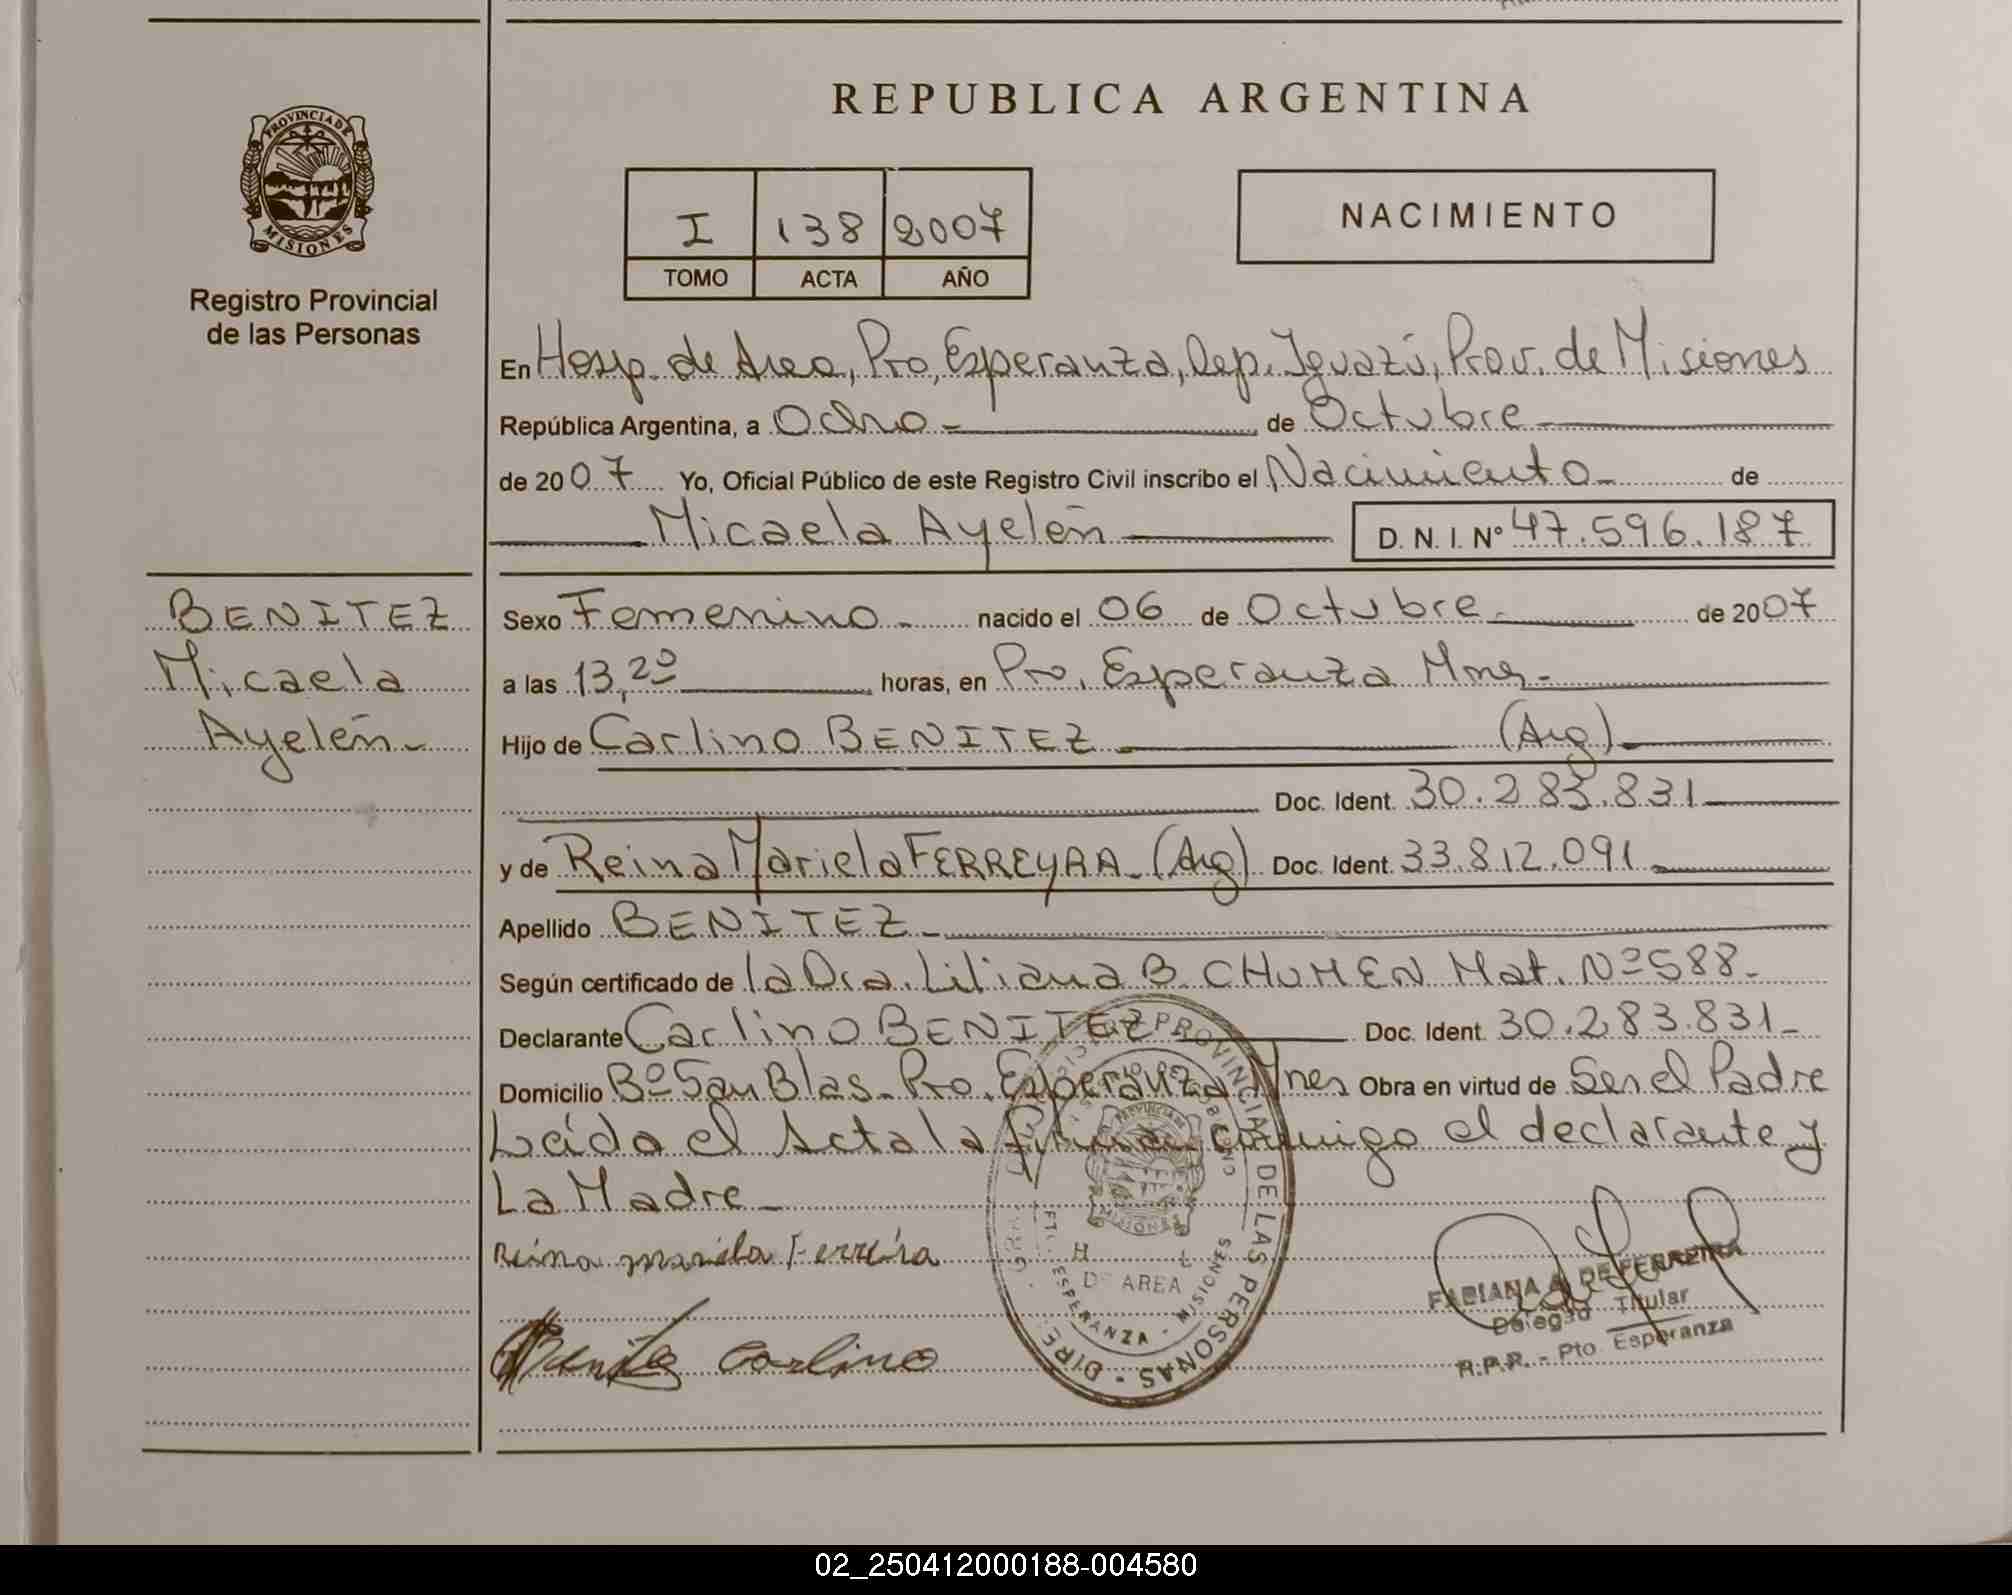 REPUBLICA ARGENTINA
PROVINCIA DE
MISIONES
Registro Provincial
de las Personas
I 138 2007
TOMO ACTA AÑO
NACIMIENTO
En Hosp. de Area, Pto, Esperanza, Dep. Iguazú, Prov. de Misiones
República Argentina, a Ocho de Octubre
de 2007 Yo, Oficial Público de este Registro Civil inscribo el Nacimiento de
Micaela Ayelén D. N. I. Nº 47.596.187
BENITEZ
Micaela
Ayelén
Sexo Femenino nacido el 06 de Octubre de 2007
a las 13,20 horas, en Pto. Esperanza Mnes
Hijo de Carlino BENITEZ (Arg)
Doc. Ident. 30.283.831
y de Reina Mariela FERREYRA (Arg) Doc. Ident. 33.812.091
Apellido BENITEZ
Según certificado de la Dra. Liliana B. CHUMEN Mat. Nº 588
Declarante Carlino BENITEZ Doc. Ident. 30.283.831
Domicilio Bº San Blas Pto. Esperanza Mnes Obra en virtud de Ser el Padre
Leída el Acta la firman conmigo el declarante y
La Madre
Reina mariela Ferreira
Benitez Carlino
PROVINCIAL DE LAS PERSONAS - DIRE
DE AREA
ESPERANZA - MISIONES
FABIANA A. DE FERREIRA
Delegad Titular
R.P.P. - Pto Esperanza
02_250412000188-004580